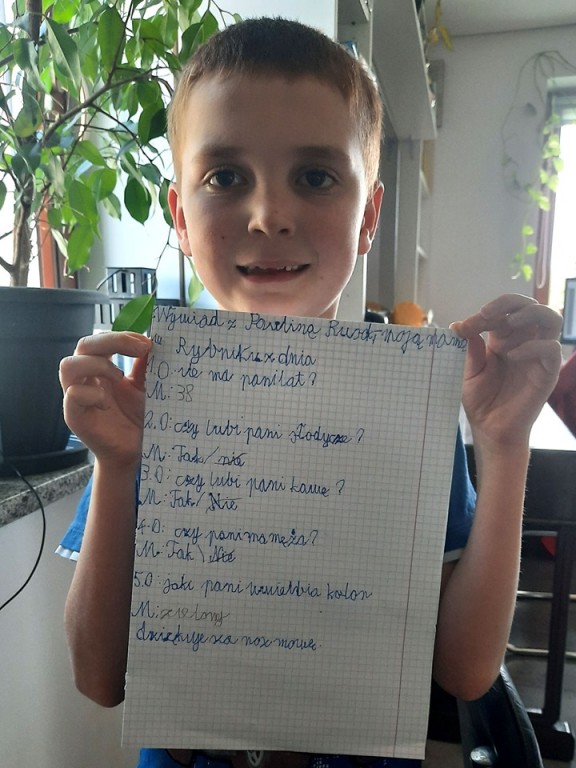 Wywiad z Pauliną Rusd, moją mamą
w Rybniku z dnia
1.O: ile ma pani lat?
M: 38
2.O: czy lubi pani słodycze?
M: Tak/nie
3.O: czy lubi pani kawę?
M: Tak/Nie
4.O: czy pani ma męża?
M: Tak\Nie
5.O: jaki pani uwielbia kolor
M: zielony
dziękuje za rozmowę.